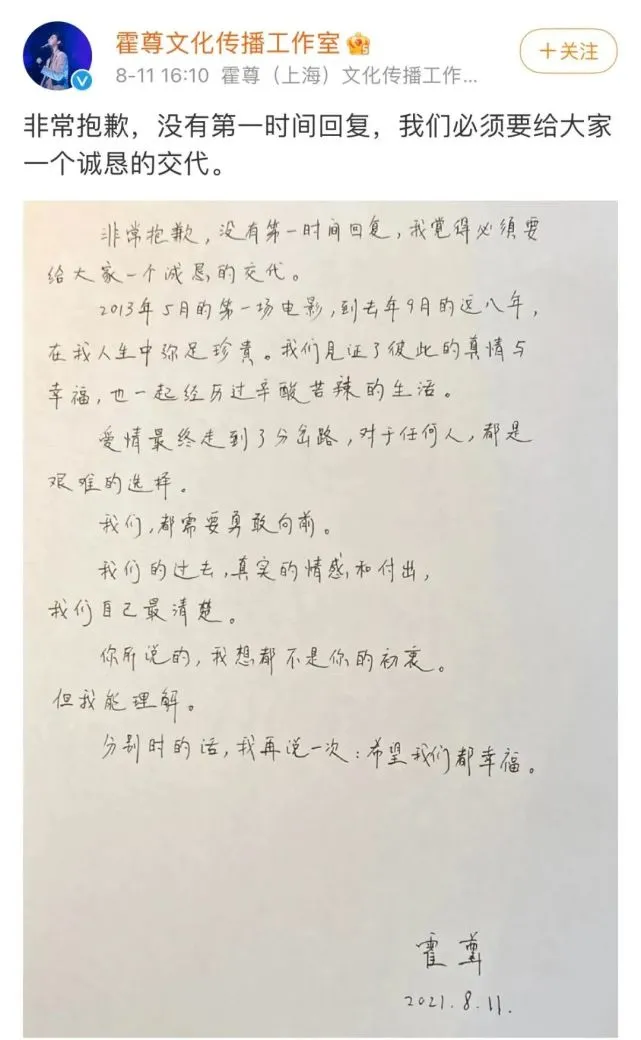 霍尊文化传播工作室
8-11 16:10 霍尊（上海）文化传播工作...
+关注
非常抱歉，没有第一时间回复，我们必须要给大家
一个诚恳的交代。
非常抱歉，没有第一时间回复，我觉得必须要
给大家一个诚恳的交代。
2013年5月的第一场电影，到去年9月的这八年，
在我人生中弥足珍贵。我们见证了彼此的真情与
幸福，也一起经历过辛酸苦辣的生活。
爱情最终走到了分岔路，对于任何人，都是
艰难的选择。
我们，都需要勇敢向前。
我们的过去，真实的情感和付出，
我们自己最清楚。
你所说的，我想都不是你的初衷。
但我能理解。
分别时的话，我再说一次：希望我们都幸福。
霍尊
2021.8.11.